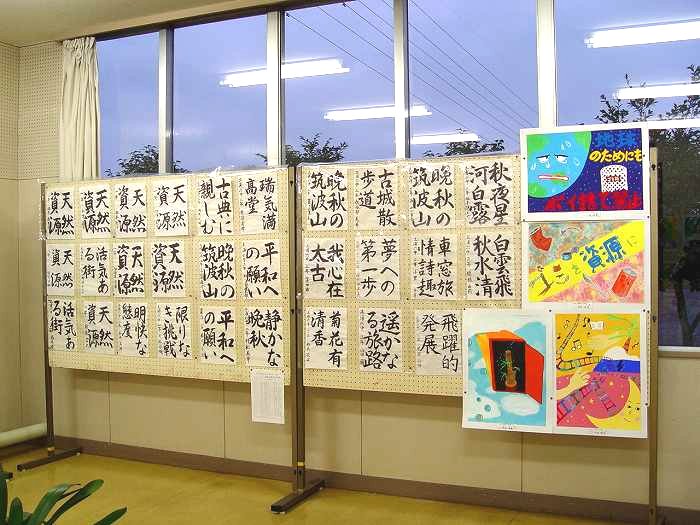 天然
資源
天然
資源
天然
資源
天然
資源
古典に
親しむ
瑞気満
高堂
天然
資源
活気あ
る街
天然
資源
天然
資源
晩秋の
筑波山
平和へ
の願い
活気あ
る街
天然
資源
明快な
態度
限りな
き挑戦
平和へ
の願い
静かな
晩秋
晩秋の
筑波山
古城散
歩道
晩秋の
筑波山
秋夜星
河白露
我心在
太古
夢への
第一歩
車窓旅
情詩趣
白雲飛
秋水清
菊花有
清香
遥かな
る旅路
飛躍的
発展
地球
のためにも
ポイ捨て禁止
ゴミを資源に